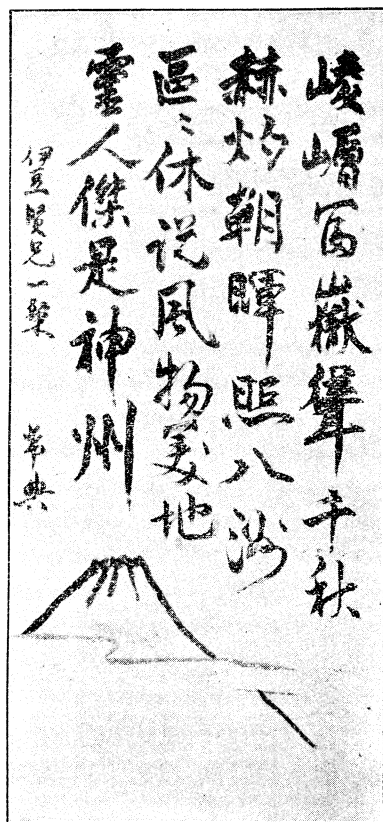 崚嶒冨嶽聳千秋
赫灼朝暉照八洲
區〻休説風物美地
靈人傑是神州
伊豆賢兄一粲
常典